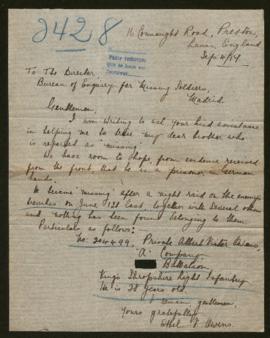 2428
16 Connaught Road, Preston,
Lancs, England
Sep 4/17
To The Director,
Bureau of Enquiry for Missing Soldiers,
Madrid.
Gentlemen,
I am writing to ask your kind assistance
in helping me to trace my dear brother who
is reported as "missing".
We have room to hope, from evidence received
from the front, that he is a prisoner in German
hands.
He became "missing" after a night raid on the enemy's
trenches on June last, together with several others
and nothing has been found belonging to them.
Particulars as follows:
No: 204499. Private Albert Victor
A Company
Battalion
King's Shropshire Light Infantry
He is 28 years old.
gentlemen,
Yours gratefully
Ethel V. Owens.